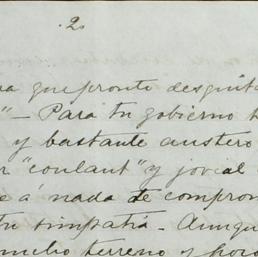 . 2.
que pronto desquit
" — Para tu gobierno t
y bastante austero
r "coulant" y jovial
e á nada de comprom
tu simpatía — Aunqu
mucho terreno y